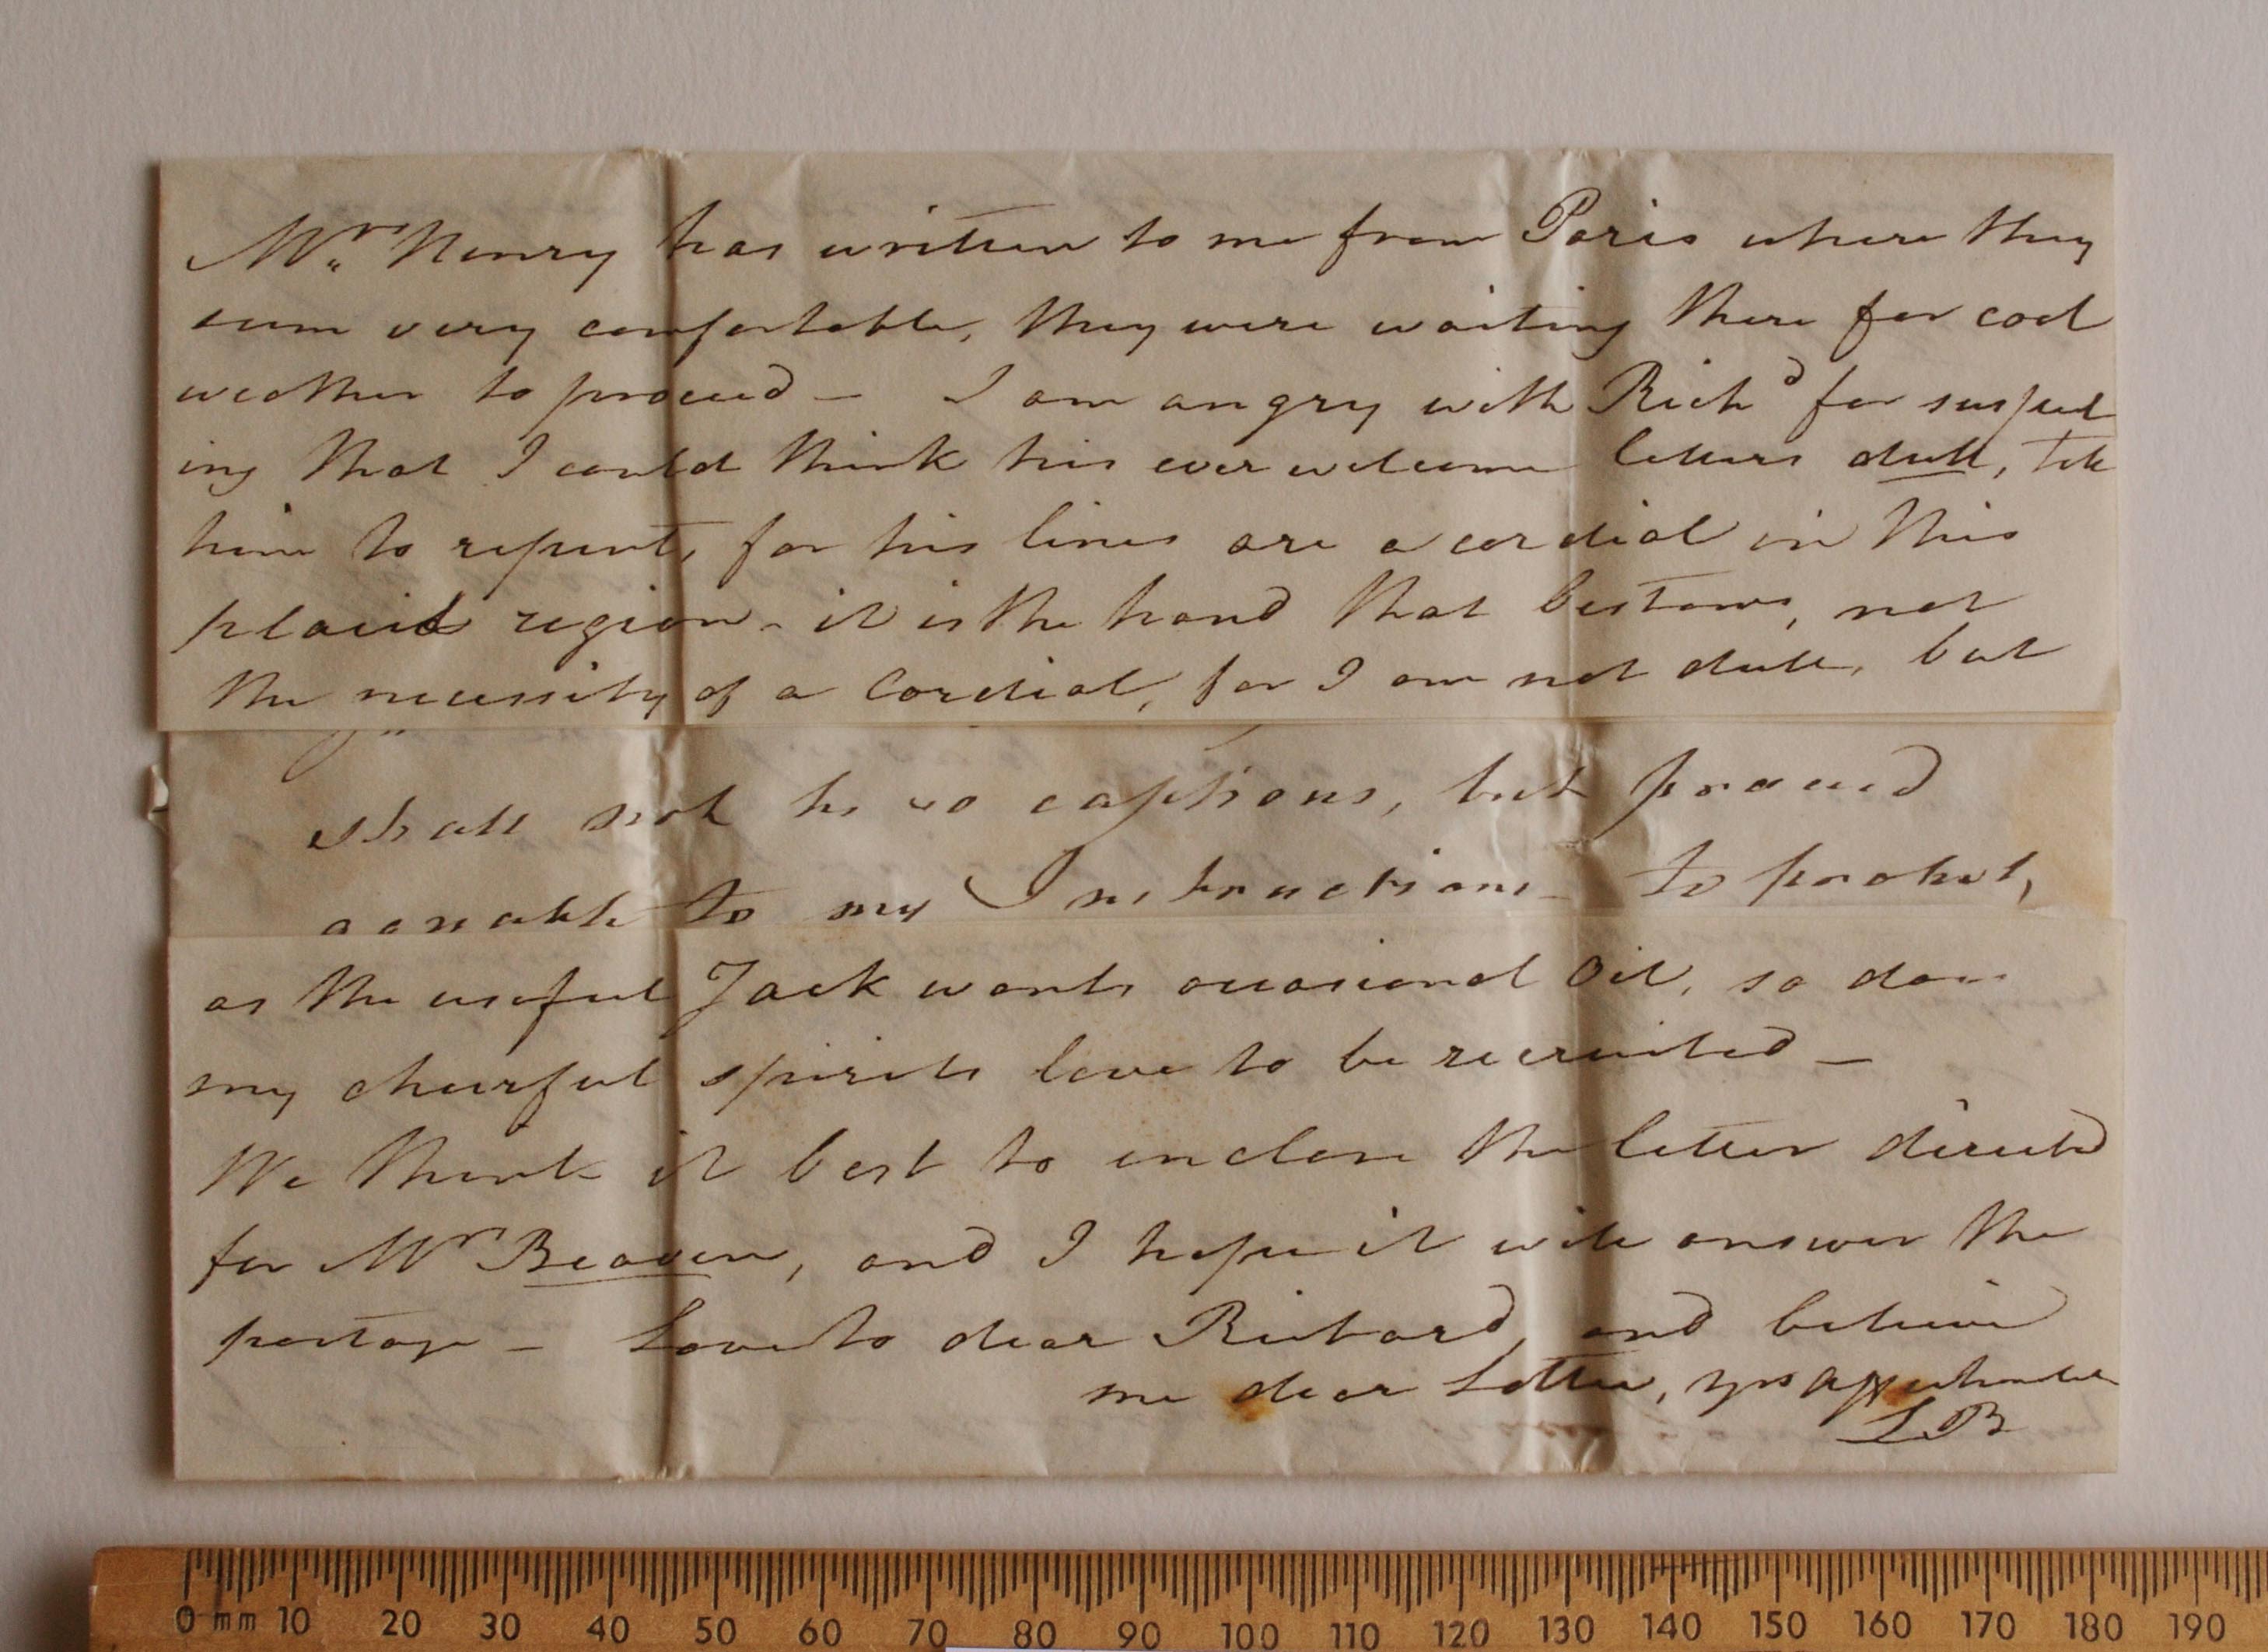 Mr. Henry has written to me from Paris where they
seem very comfortable, they were waiting there for cool
weather to proceed – I am angry with Richd for suspect
ing that I could think his ever welcome letters dull, tell
him to repent, for his lines are a cordial in this
placid region – it is the hand that bestows, not
the necessity of a Cordial, for I am not dull, but
shall not be so captious, but proceed
to my Instructions – to probat,
as the useful Jack wants occasional Oil, so does
my chearful spirits love to be recruited –
We think it best to enclose the letter directed
for Mr Beaven, and I hope it will answer the
postage – Love to dear Richard, and believe
me dear Lottie, yrs affectionately
LB
0 mm 10 20 30 40 50 60 70 80 90 100 110 120 130 140 150 160 170 180 190